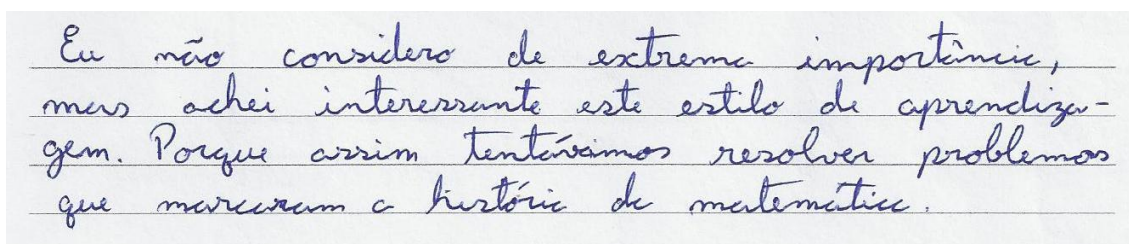 Eu não considero de extrema importância,
mas achei interessante este estilo de aprendiza-
gem. Porque assim tentávamos resolver problemas
que marcaram a história da matemática.